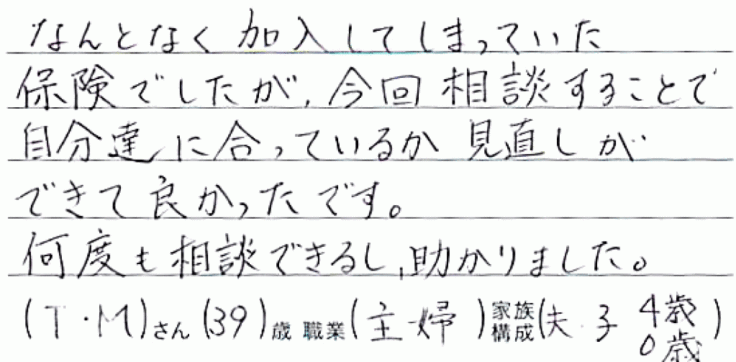 なんとなく加入してしまっていた
保険でしたが、今回相談することで
自分達に合っているか見直しが
できて良かったです。
何度も相談できるし、助かりました。
(T・M)さん(39)歳 職業(主婦)家族構成(夫・子 4歳 0歳)